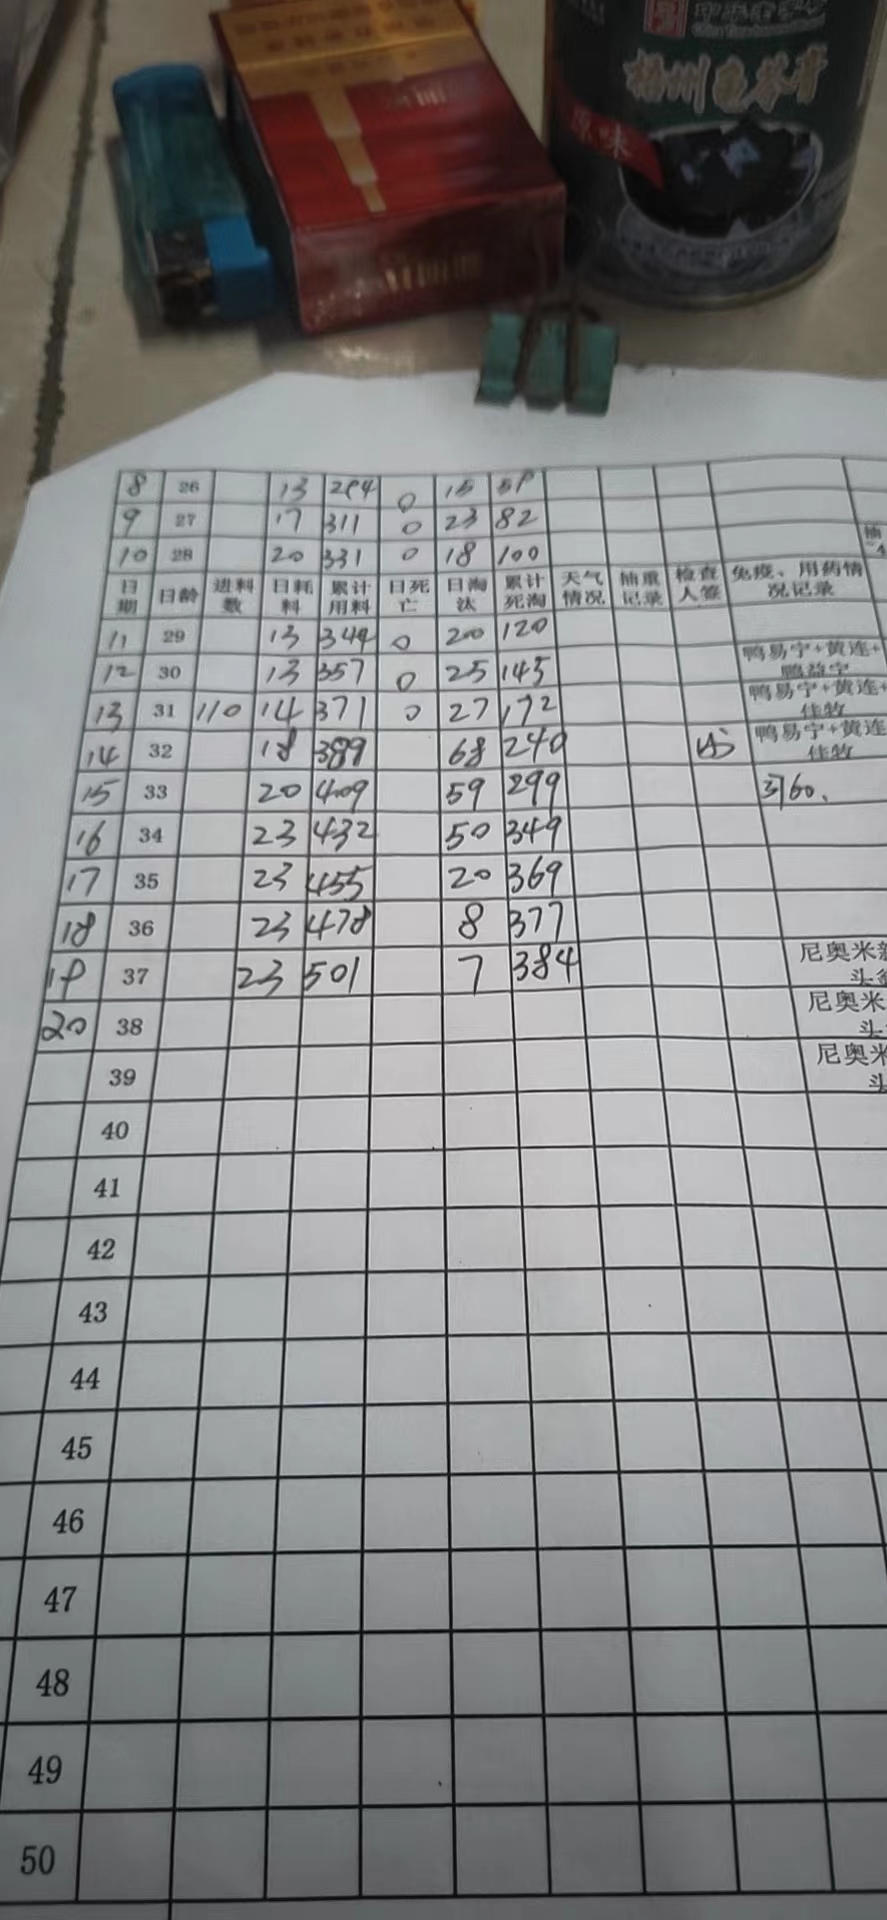 梧州龟苓膏
原味
8 26 13 294 0 15 59
9 27 17 311 0 23 82
10 28 20 331 0 18 100
日期 日龄 进料数 日耗料 累计用料 日死亡 日淘汰 累计死淘 天气情况 抽重记录 检查人签 免疫、用药情况记录
11 29 13 344 0 20 120
12 30 13 357 0 25 145 鸭易宁+黄连+鸭益宁
13 31 110 14 371 0 27 172 鸭易宁+黄连+佳牧
14 32 18 389 68 240 鸭易宁+黄连+佳牧
15 33 20 409 59 299
16 34 23 432 50 349
17 35 23 455 20 369
18 36 23 478 8 377
19 37 23 501 7 384 尼奥米 头
20 38 尼奥米 头
39 尼奥米 头
40
41
42
43
44
45
46
47
48
49
50